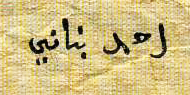 احمد بناني